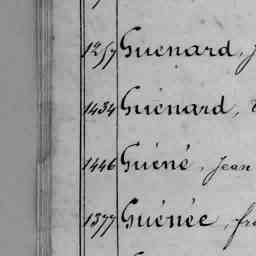 1257 Guenard,
1434 Guénard,
1446 Guéné, Jean
1377 Guénée, fr